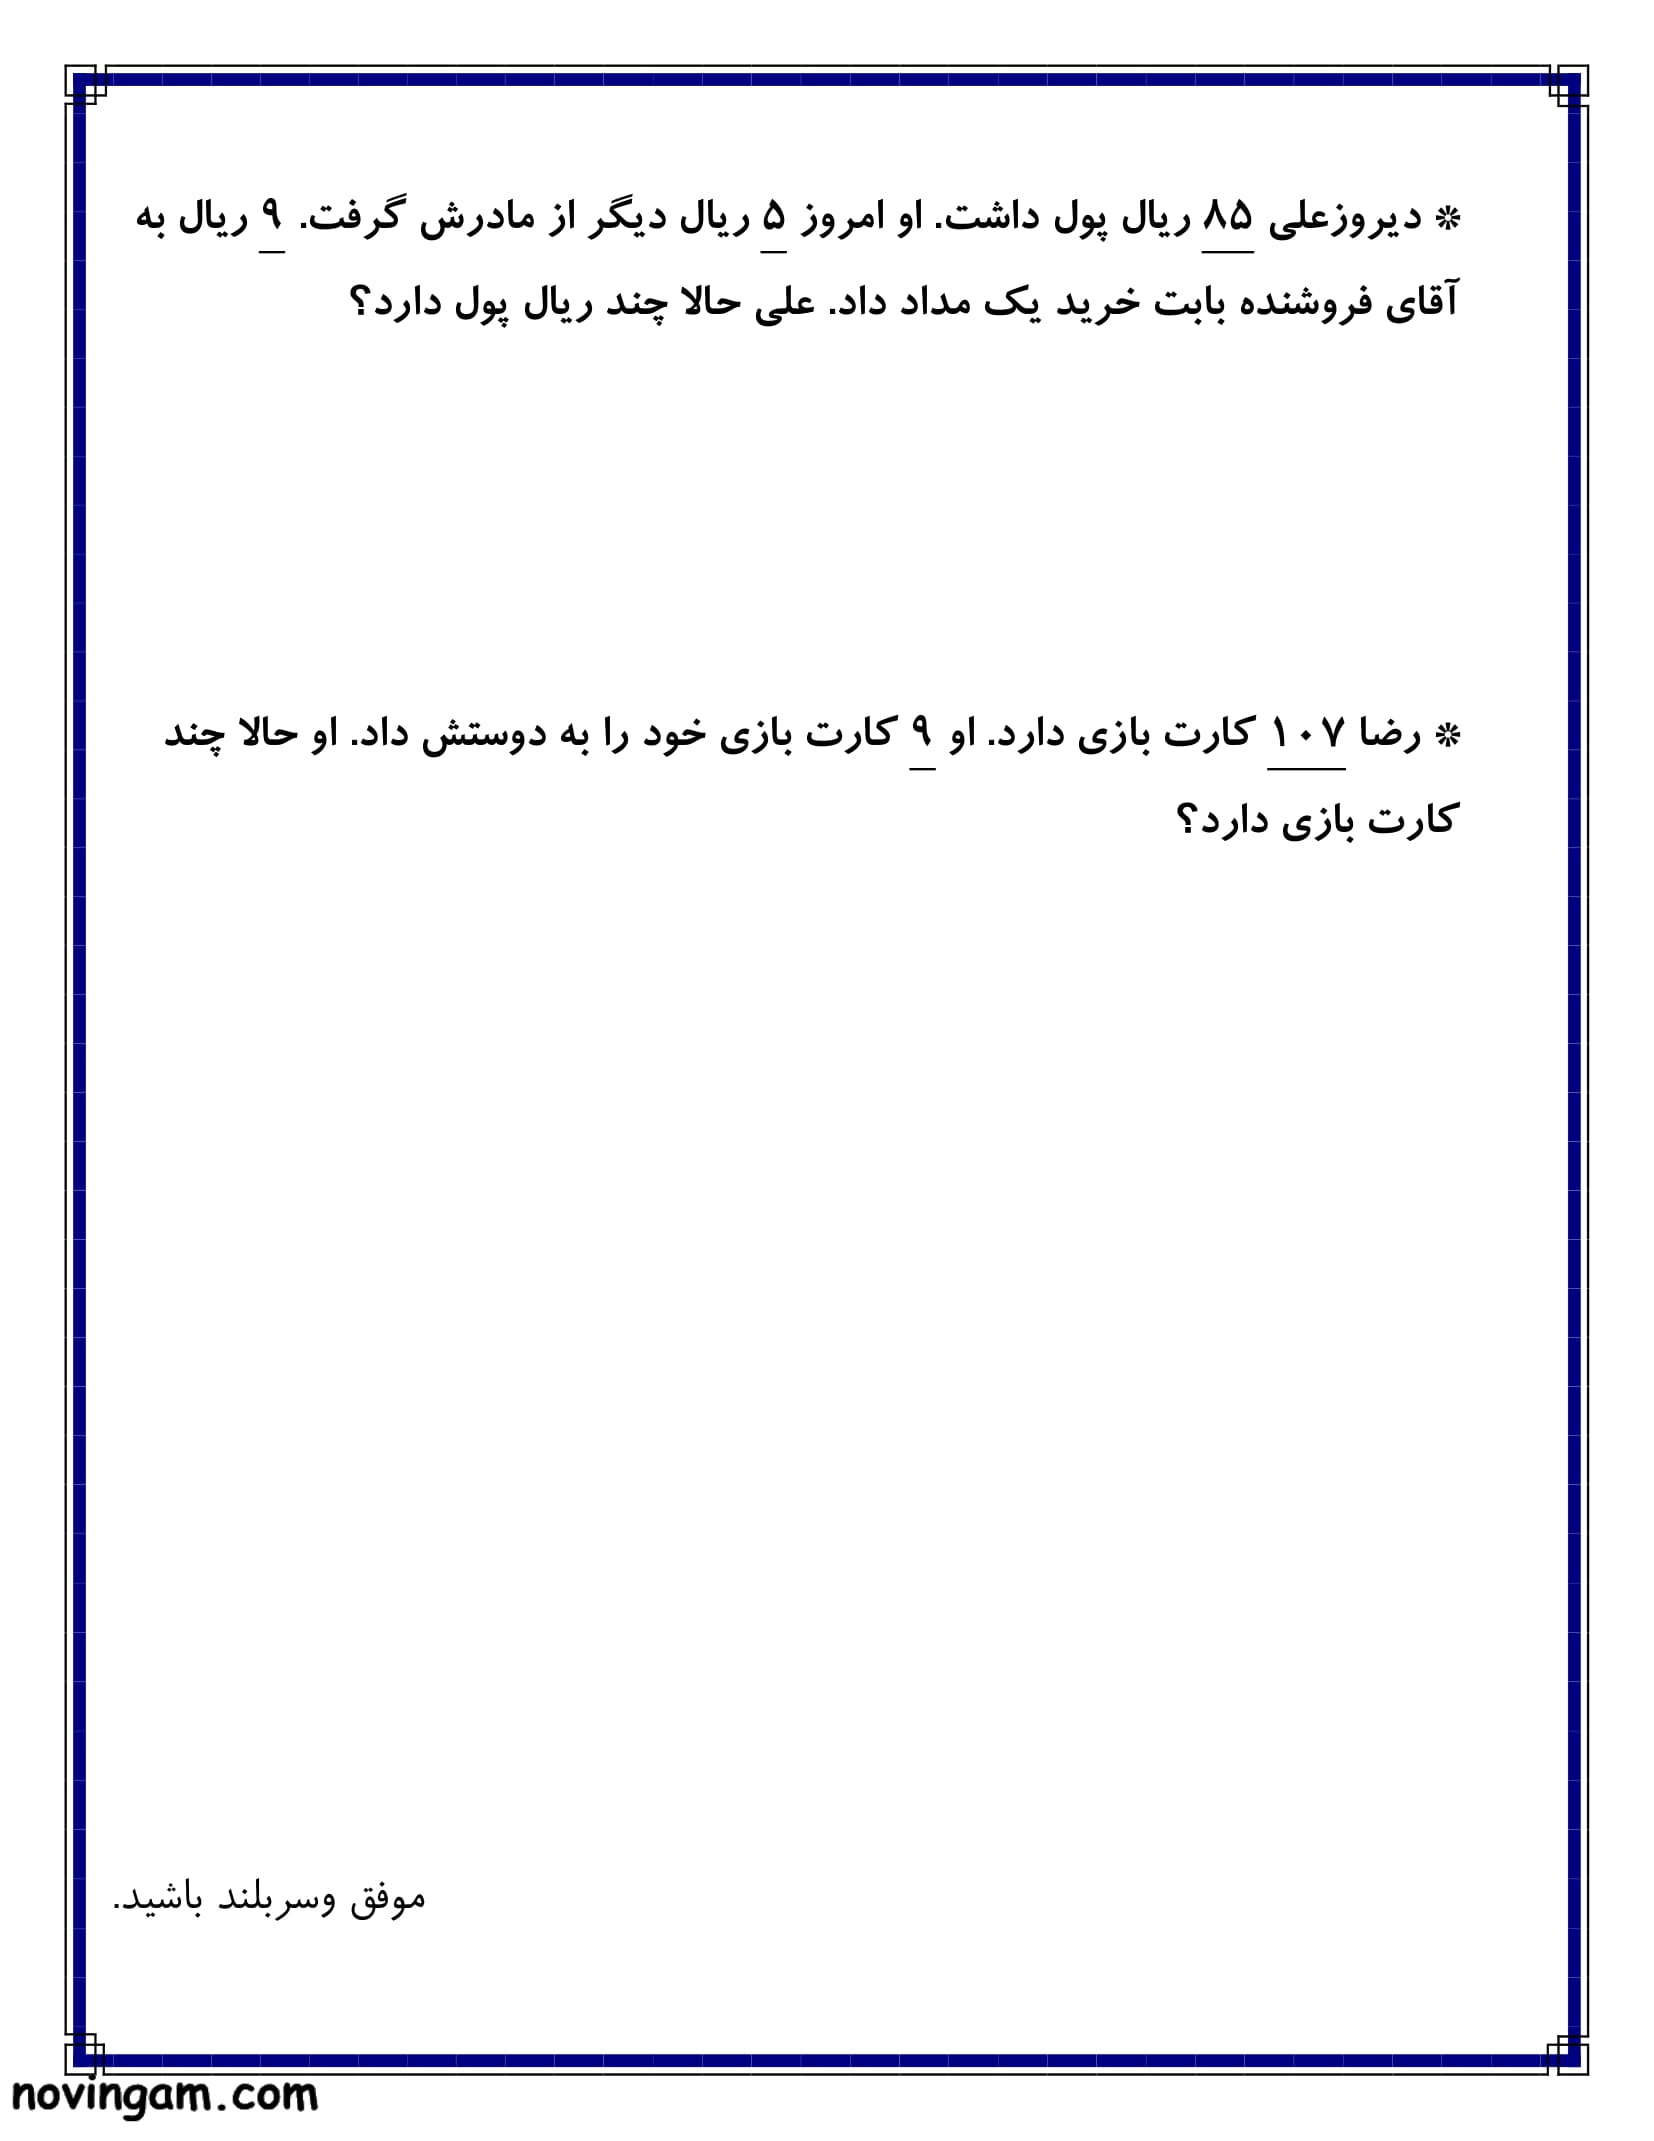 * دیروزعلی ۸۵ ریال پول داشت. او امروز ۵ ریال دیگر از مادرش گرفت. ۹ ریال به
آقای فروشنده بابت خرید یک مداد داد. علی حالا چند ریال پول دارد؟
* رضا ۱۰۷ کارت بازی دارد. او ۹ کارت بازی خود را به دوستش داد. او حالا چند
کارت بازی دارد؟
موفق وسربلند باشید.
novingam.com